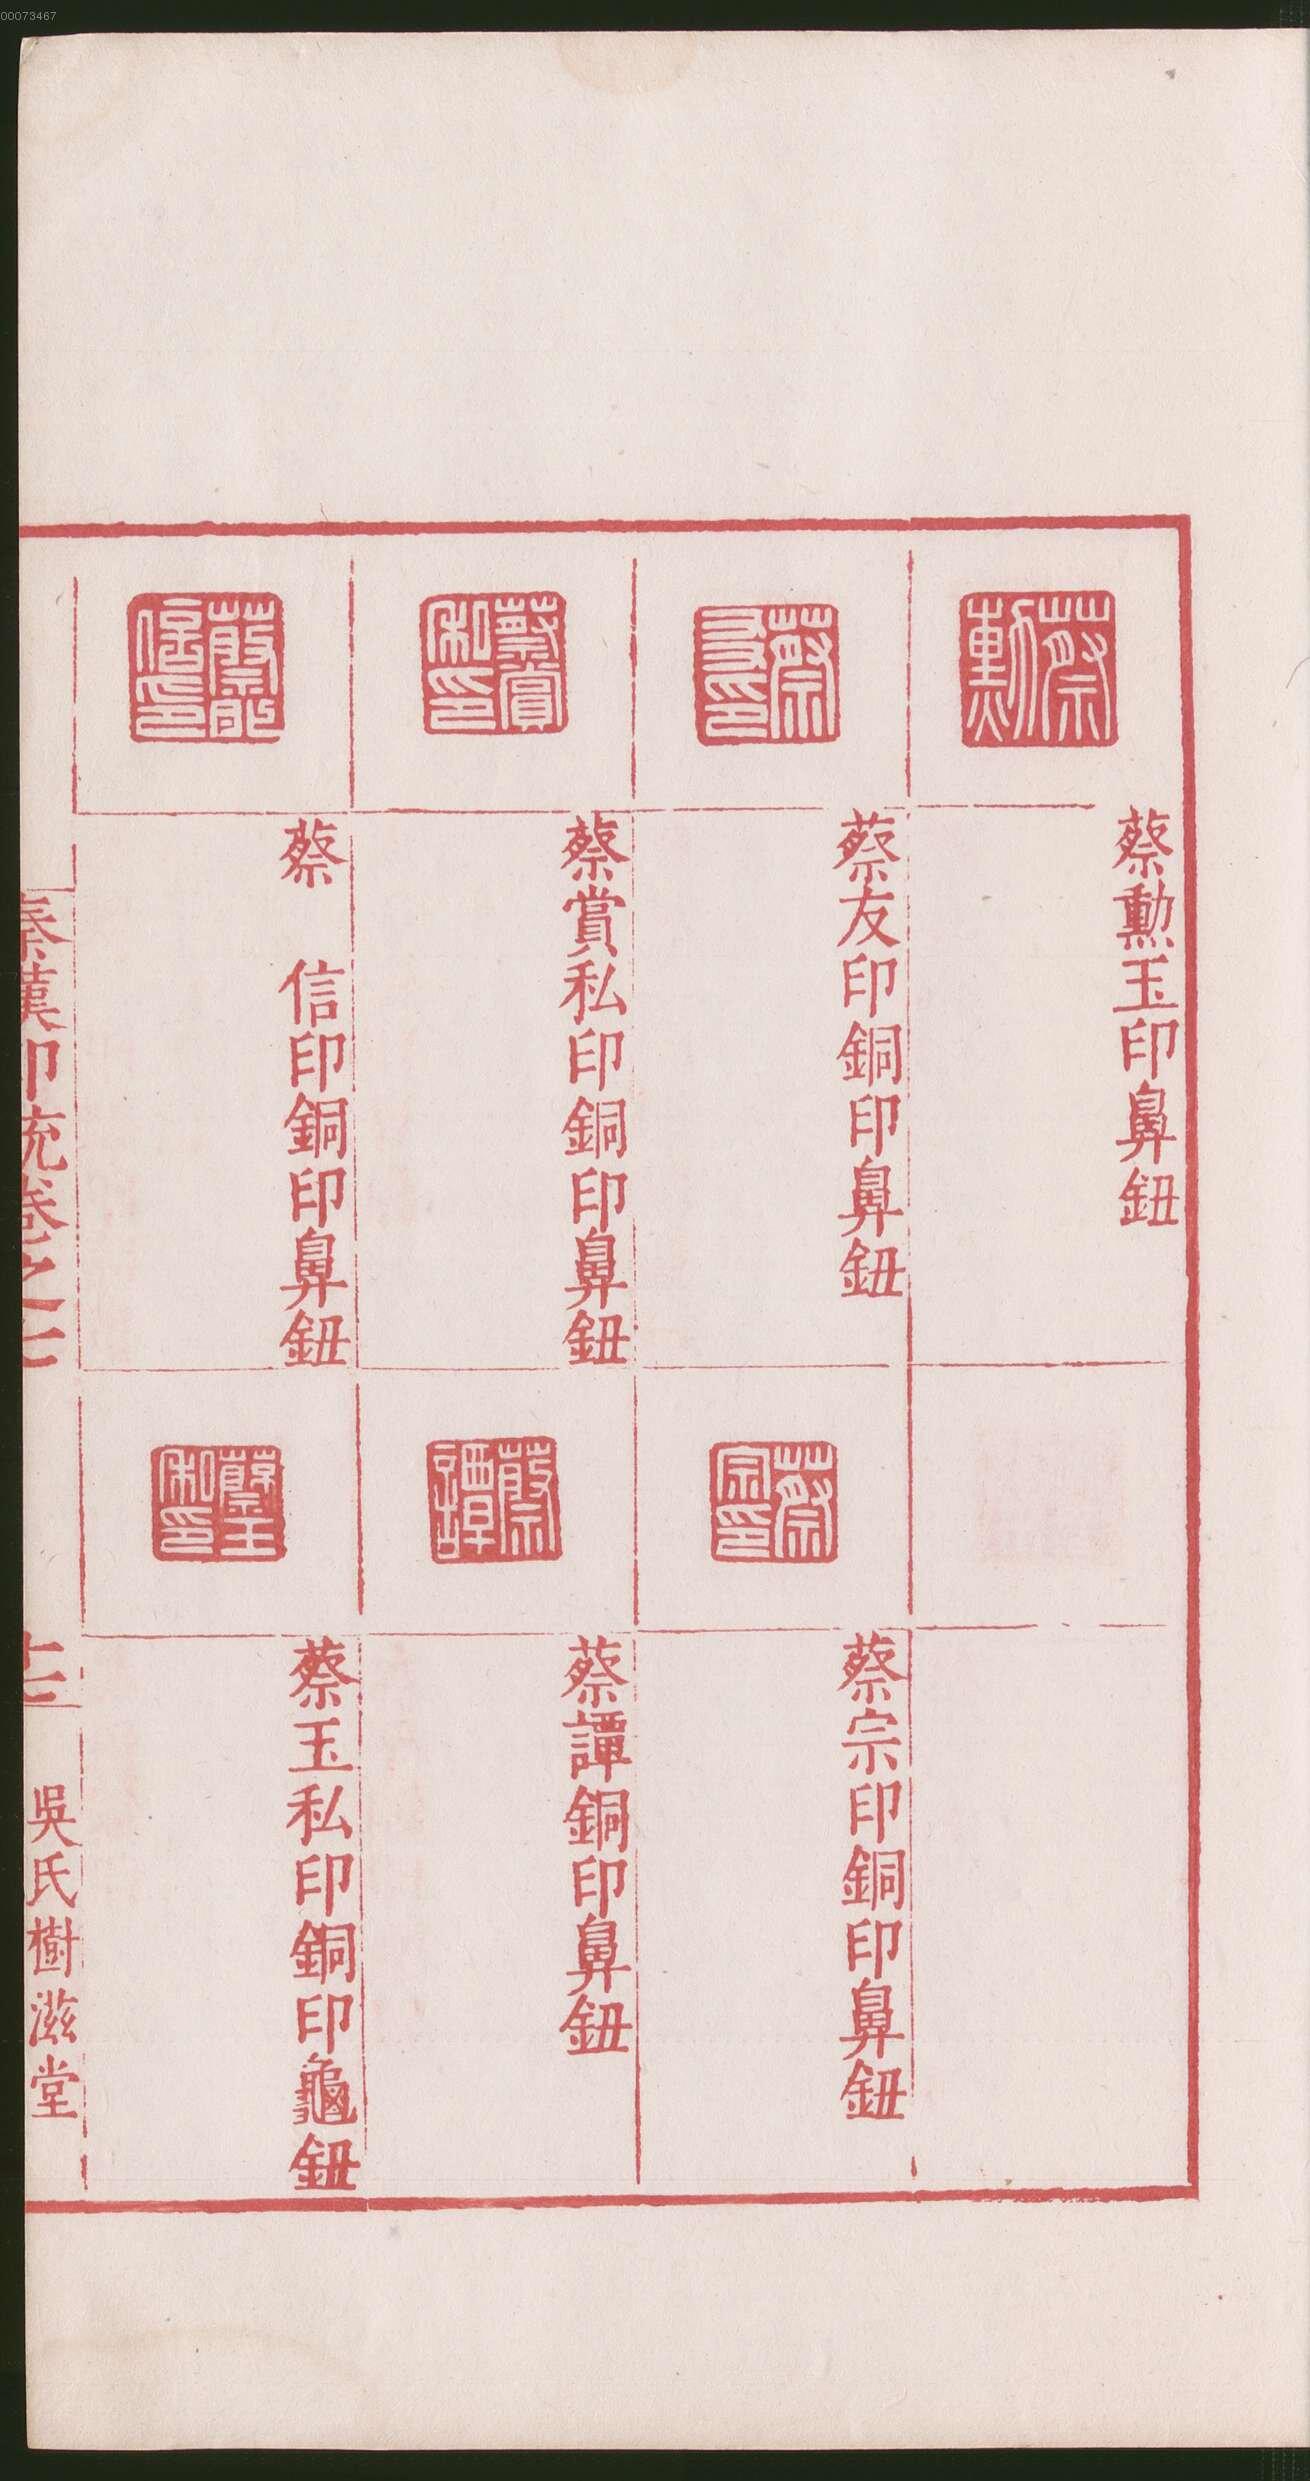 00073467
蔡勳
蔡勳玉印鼻鈕
蔡友印
蔡友印銅印鼻鈕
蔡宗印
蔡宗印銅印鼻鈕
蔡賞私印
蔡賞私印銅印鼻鈕
蔡譚
蔡譚銅印鼻鈕
蔡信印
蔡　信印銅印鼻鈕
蔡玉私印
蔡玉私印銅印龜鈕
秦漢印統卷之七
十七
吳氏樹滋堂